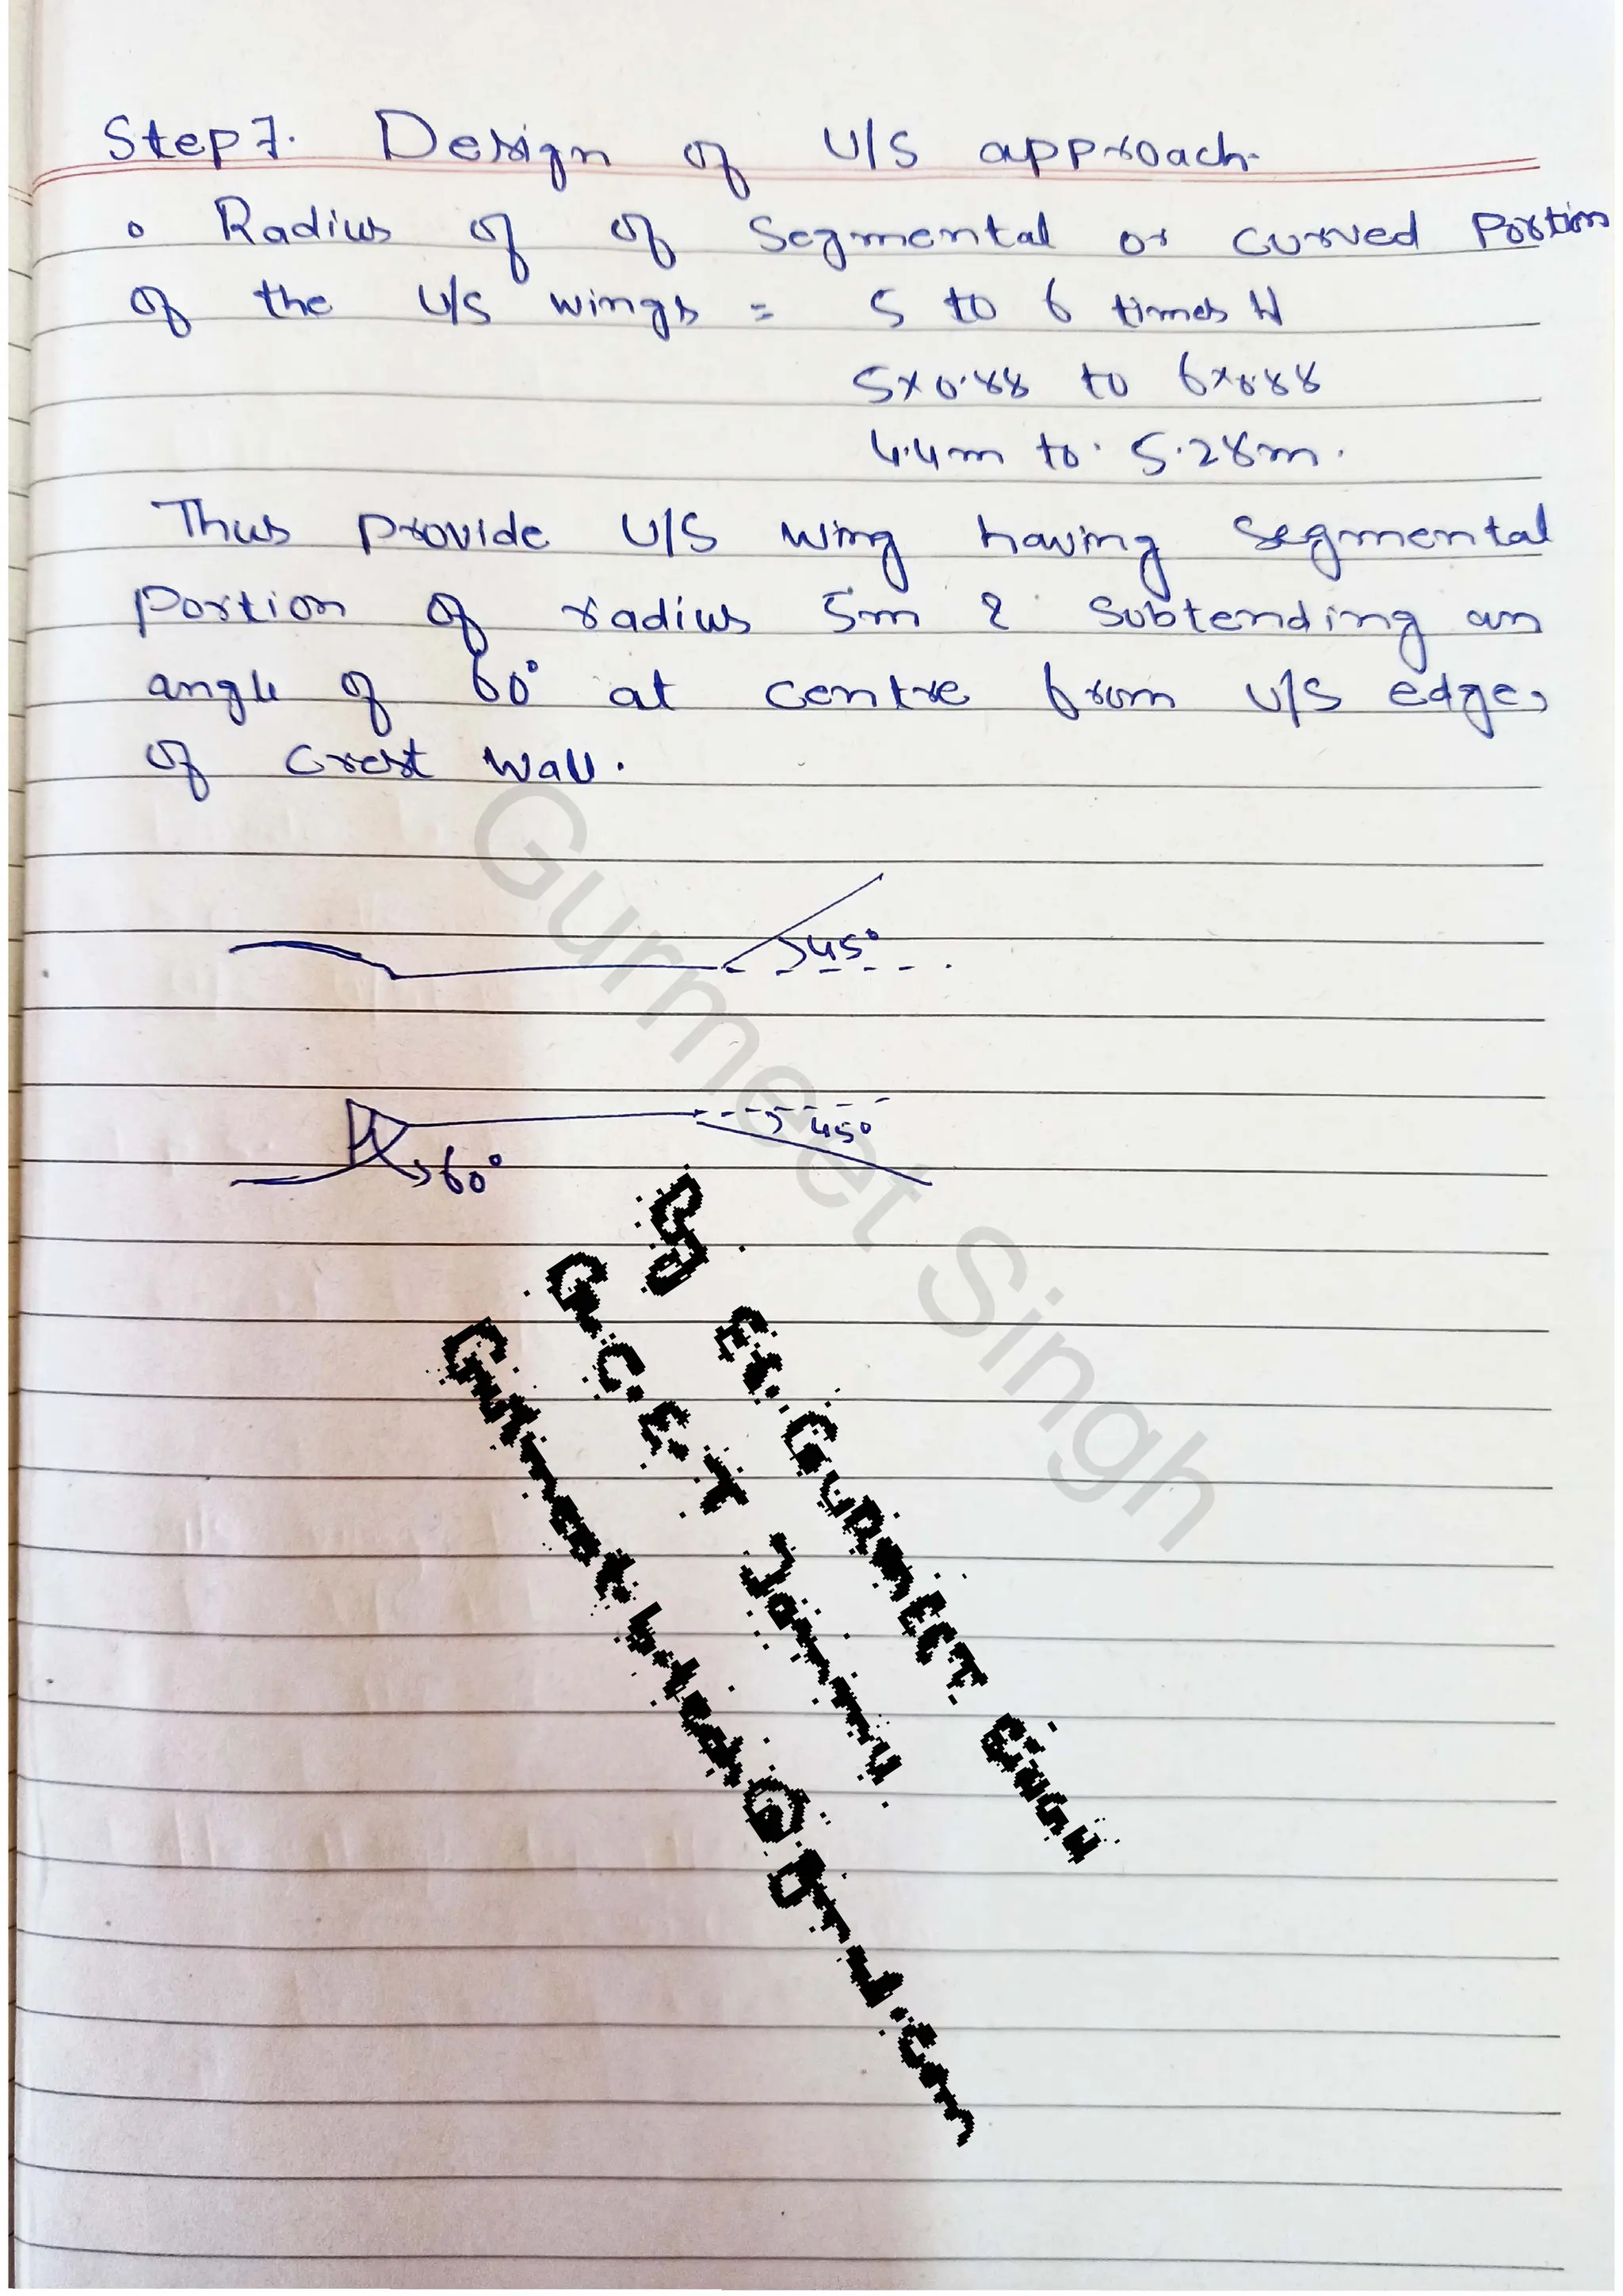 Step 7. Design of U/S approach.
o Radius of of Segmental or curved Portion
of the U/S wings = 5 to 6 times H
5×0.88 to 6×0.88
4.4m to 5.28m.
Thus provide U/S wing having Segmental
portion of radius 5m & Subtending an
angle of 60° at centre from U/S edge,
of Crest Wall.
45°
45°
60°
Gurmeet Singh
By Er. GURMEET SINGH
G.C.E.T Jammu